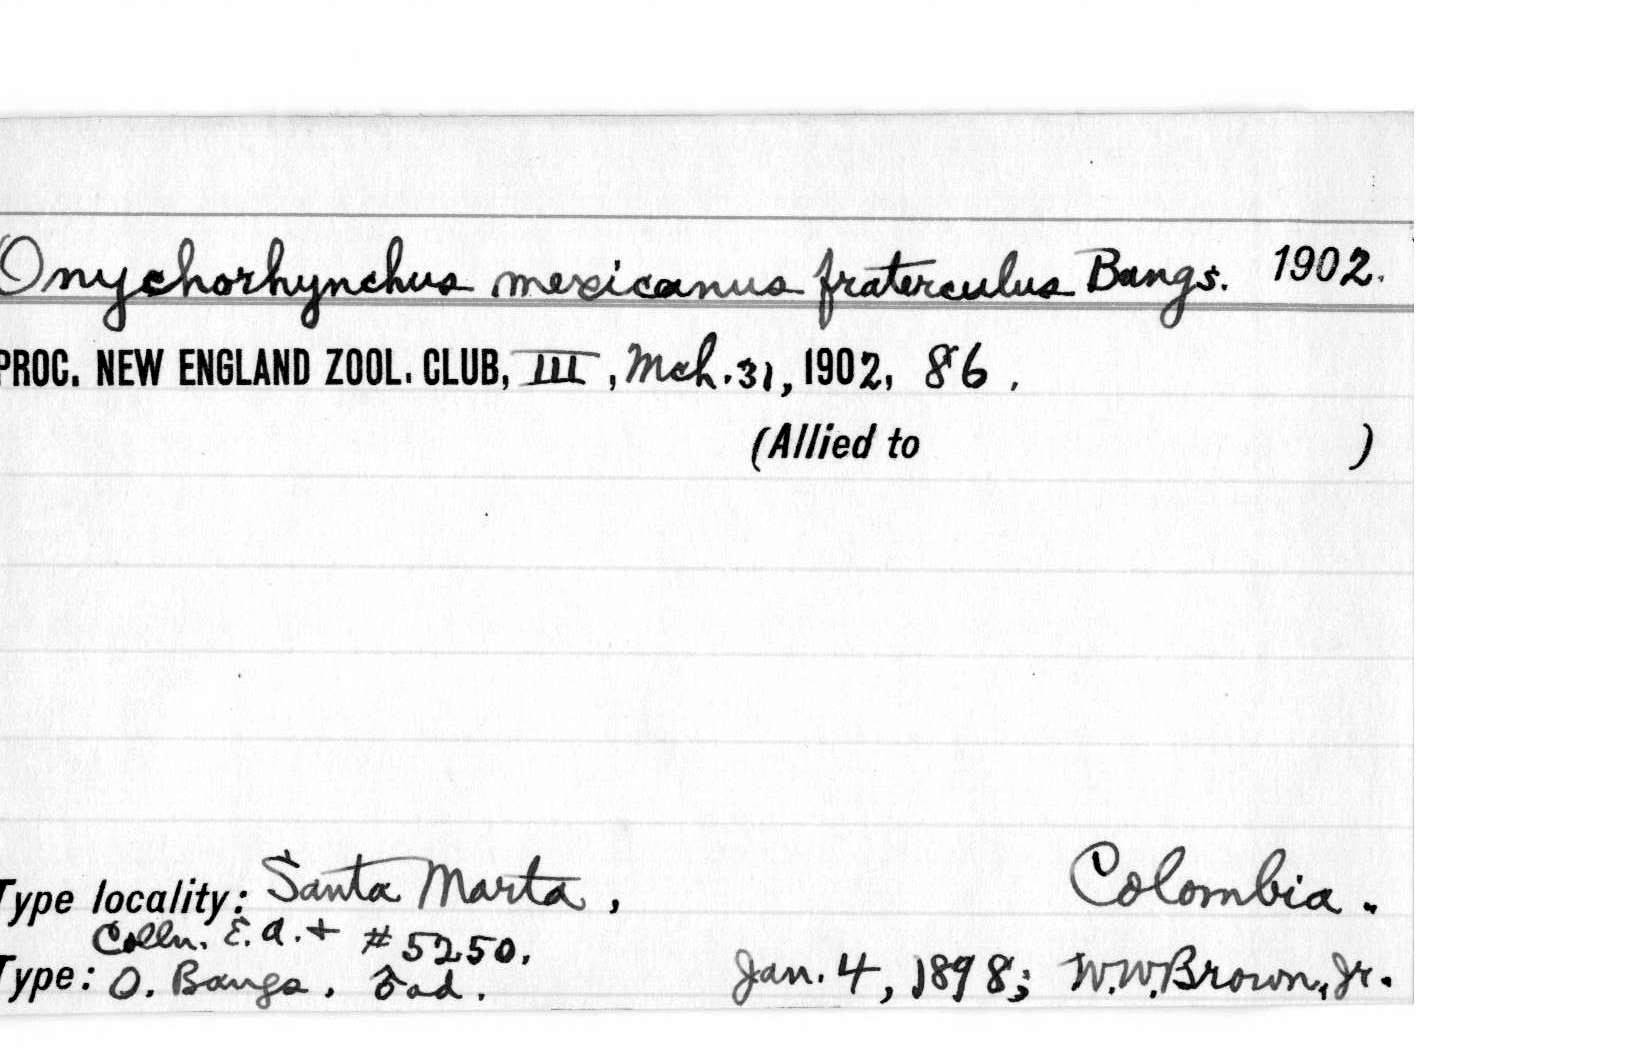 Onychorhynchus mexicanus fraterculus Bangs. 1902.
PROC. NEW ENGLAND ZOOL. CLUB, III, Mch. 31, 1902, 86.
(Allied to )
Type locality: Santa Marta, Colombia.
Colln. E. A. + # 5250.
Type: O. Bangs. ad. Jan. 4, 1898; W.W. Brown, Jr.